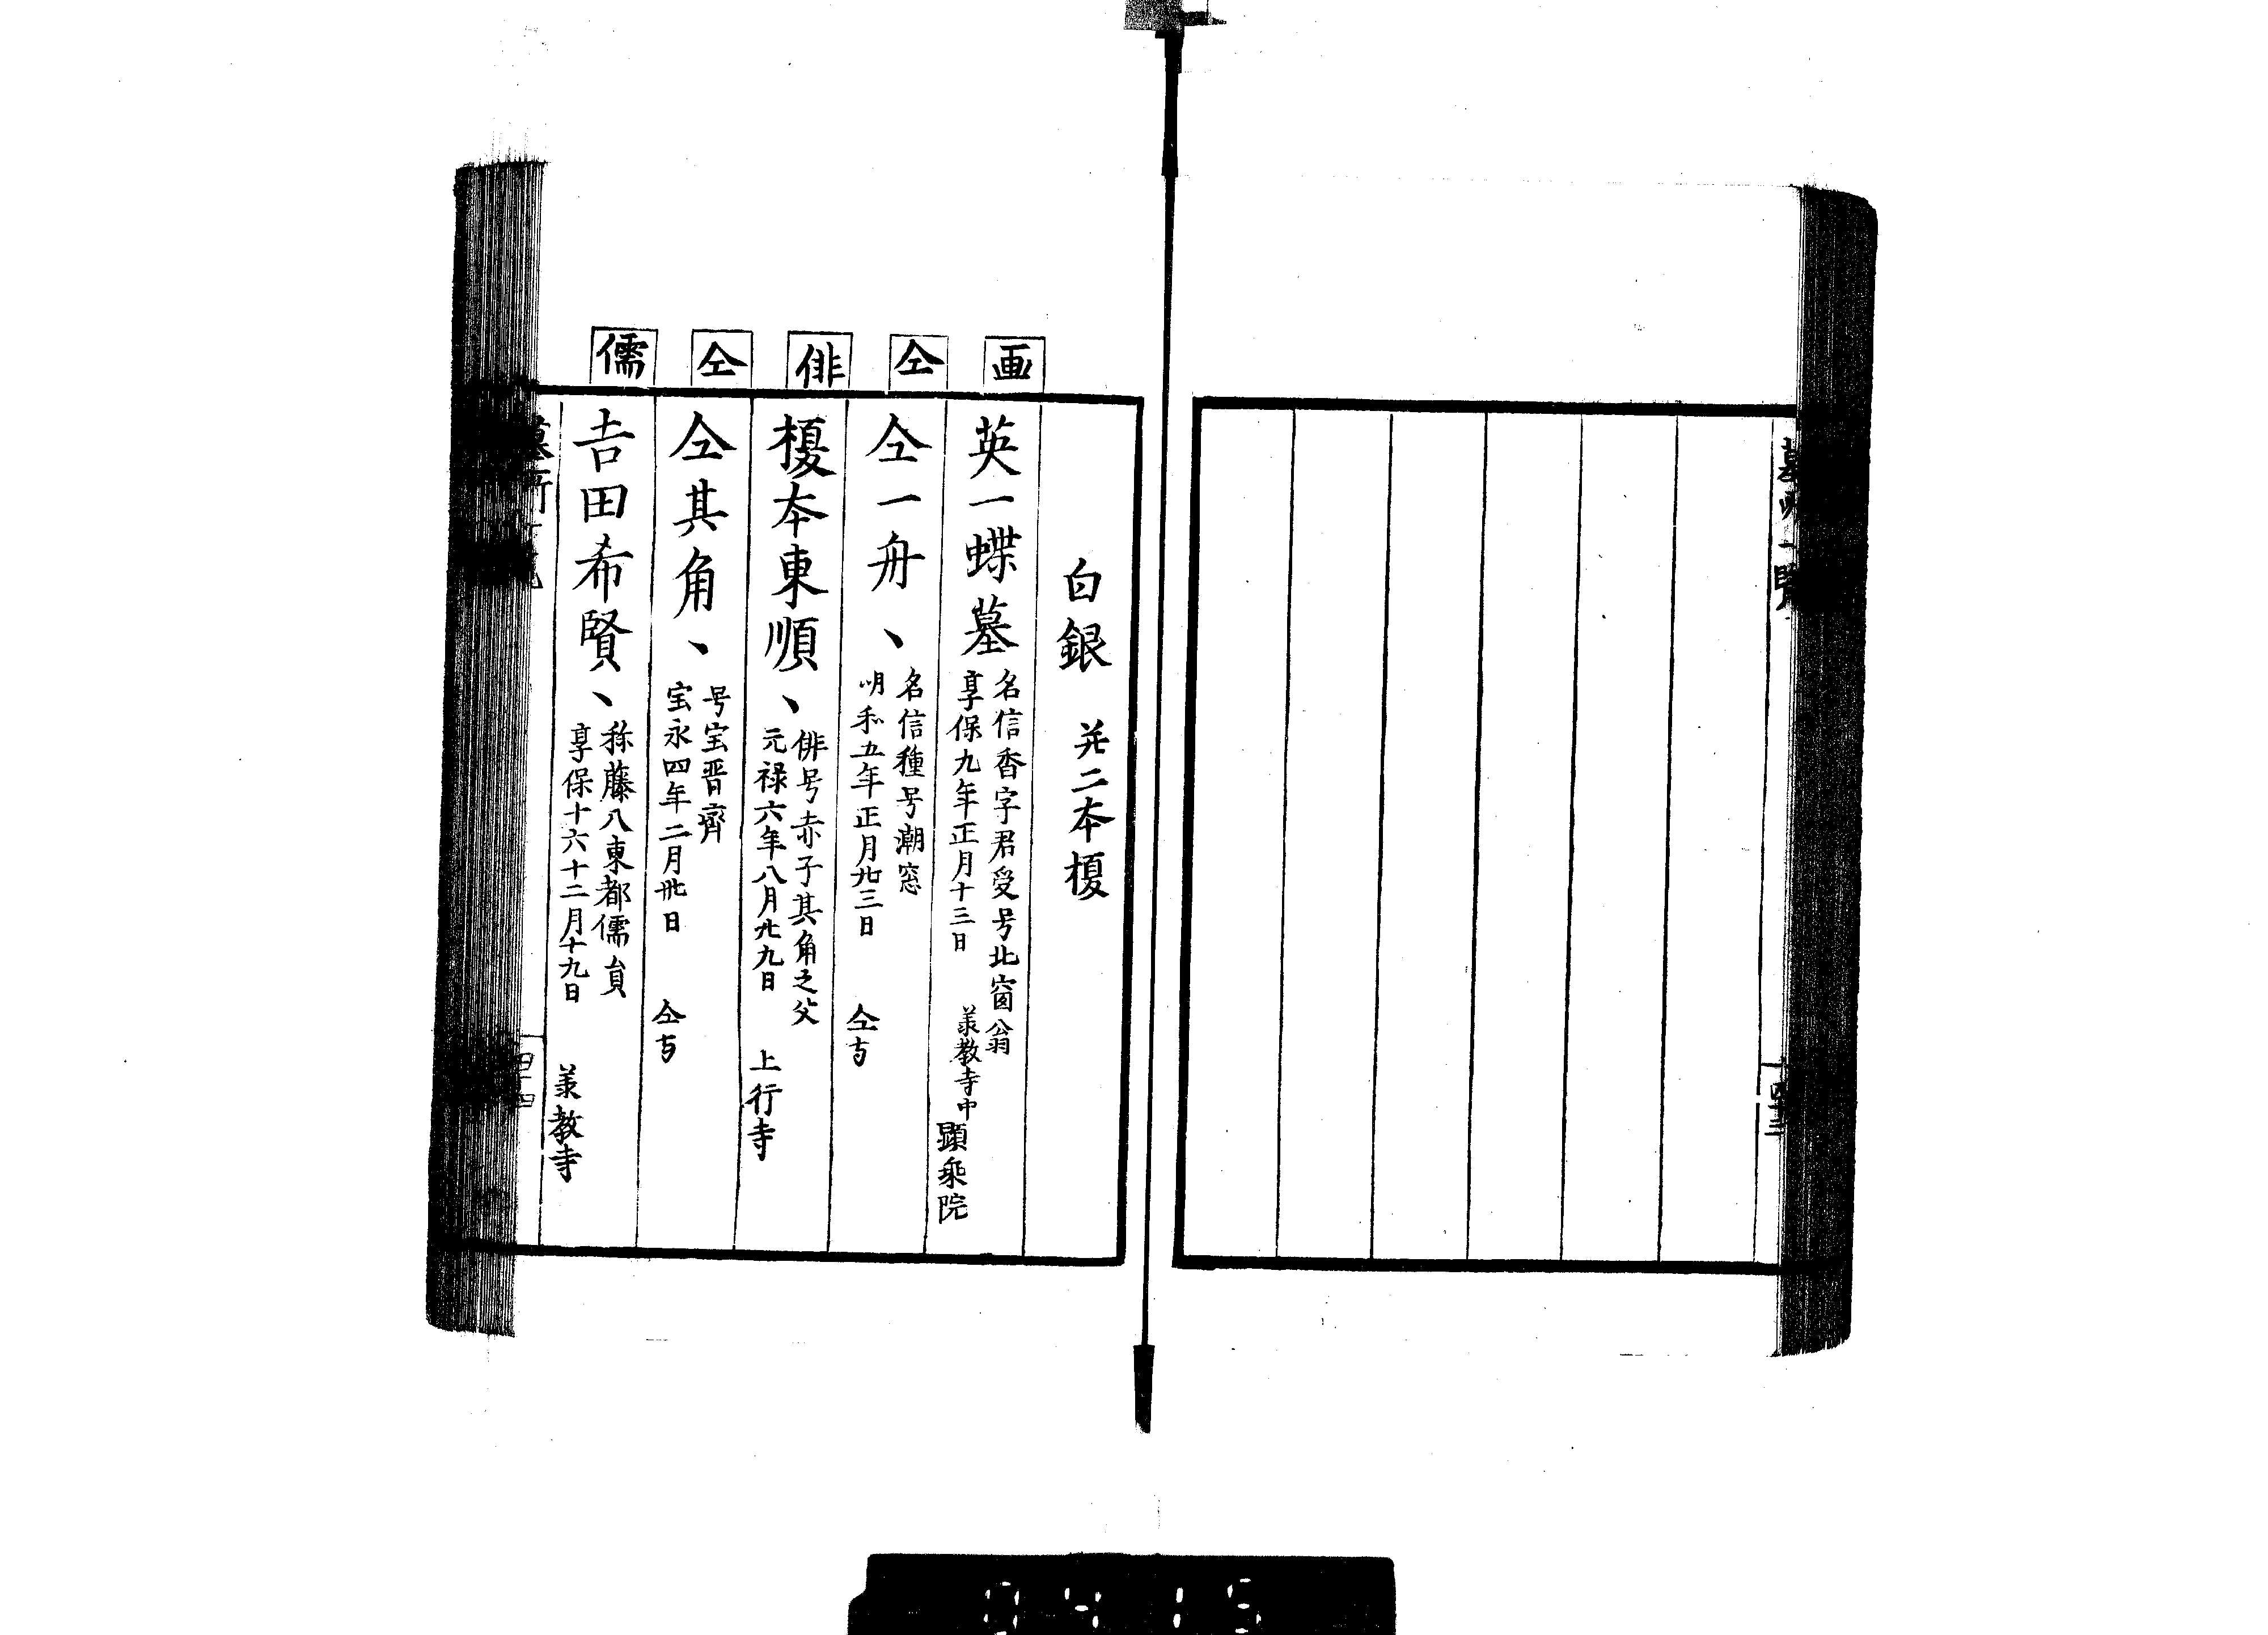 墓所一覧
四十三
白銀 并二本榎
画
英一蝶墓
名信香字君受号北窗翁
享保九年正月十三日
羕教寺中
顕乗院
仝
仝一舟、
名信種号潮窓
明和五年正月廿三日
仝寺
俳
榎本東順、
俳号赤子其角之父
元禄六年八月廿九日
上行寺
仝
仝其角、
号宝晋齊
宝永四年二月卅日
仝寺
儒
吉田希賢、
称藤八東都儒員
享保十六十二月十九日
羕教寺
四十四